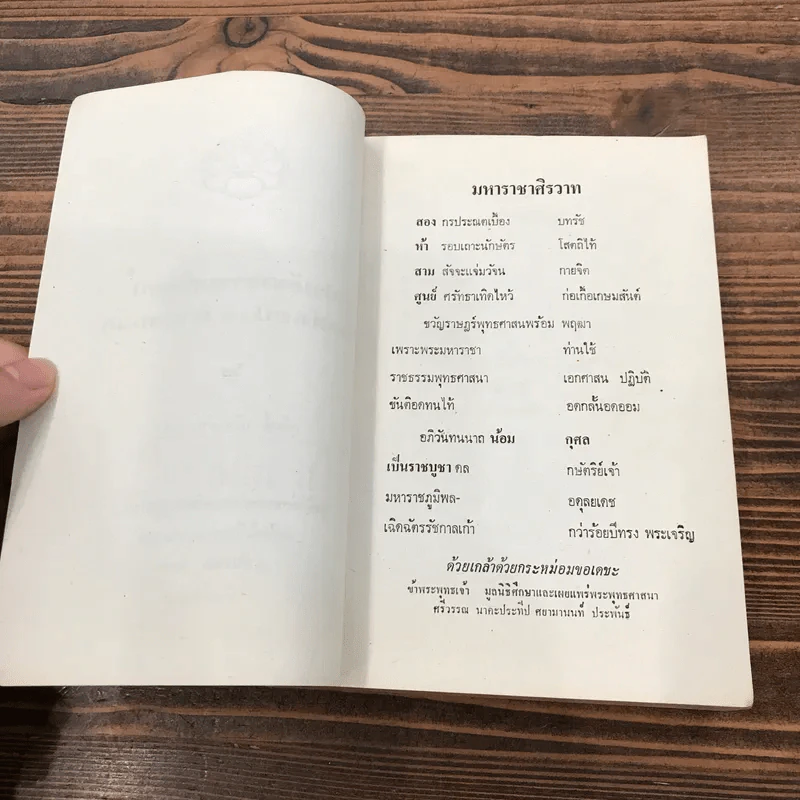 มหาราชาศิรวาท
สอง กรประณตเบื้อง บทรัช
ห้า รอบเถาะนักษัตร โสตถิไท้
สาม สัจจะแจ่มวัจน กายจิต
ศูนย์ ศรัทธาเทิดไหว้ ก่อเกื้อเกษมสันต์
ขวัญราษฎร์พุทธศาสนพร้อม พฤฒา
เพราะพระมหาราชา ท่านใช้
ราชธรรมพุทธศาสนา เอกศาสน ปฏิบัติ
ขันติอดทนไท้ อดกลั้นอดออม
อภิวันทนนาถ น้อม กุศล
เป็นราชบูชา ดล กษัตริย์เจ้า
มหาราชภูมิพล- อดุลยเดช
เฉิดฉัตรรัชกาลเก้า กว่าร้อยปีทรง พระเจริญ
ด้วยเกล้าด้วยกระหม่อมขอเดชะ
ข้าพระพุทธเจ้า มูลนิธิศึกษาและเผยแพร่พระพุทธศาสนา
ศรีวรรณ นาคะประทีป ศยามานนท์ ประพันธ์